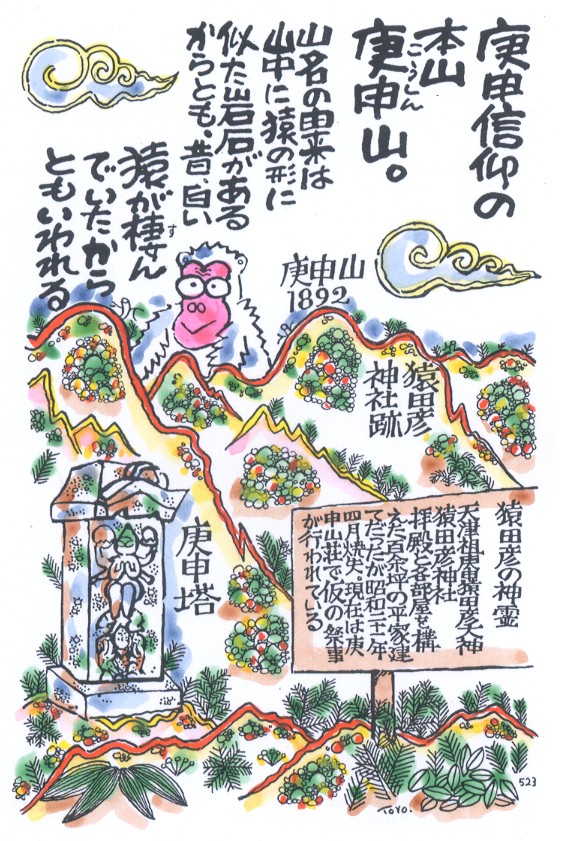 庚申信仰の
本山
庚申山。
こうしん
山名の由来は
山中に猿の形に
似た岩石がある
からとも。昔、白い
猿が棲さん
す
でいたから
ともいわれる
庚申山
1892
猿田彦
神社跡
庚申塔
猿田彦の神霊
天津祖庚申猿田彦大神
猿田彦神社
拝殿と各部屋を構
えた百余坪の平家建
てだったが昭和二十一年
四月焼失。現在は庚
申山荘で仮の祭事
が行われている
TOYO.
523